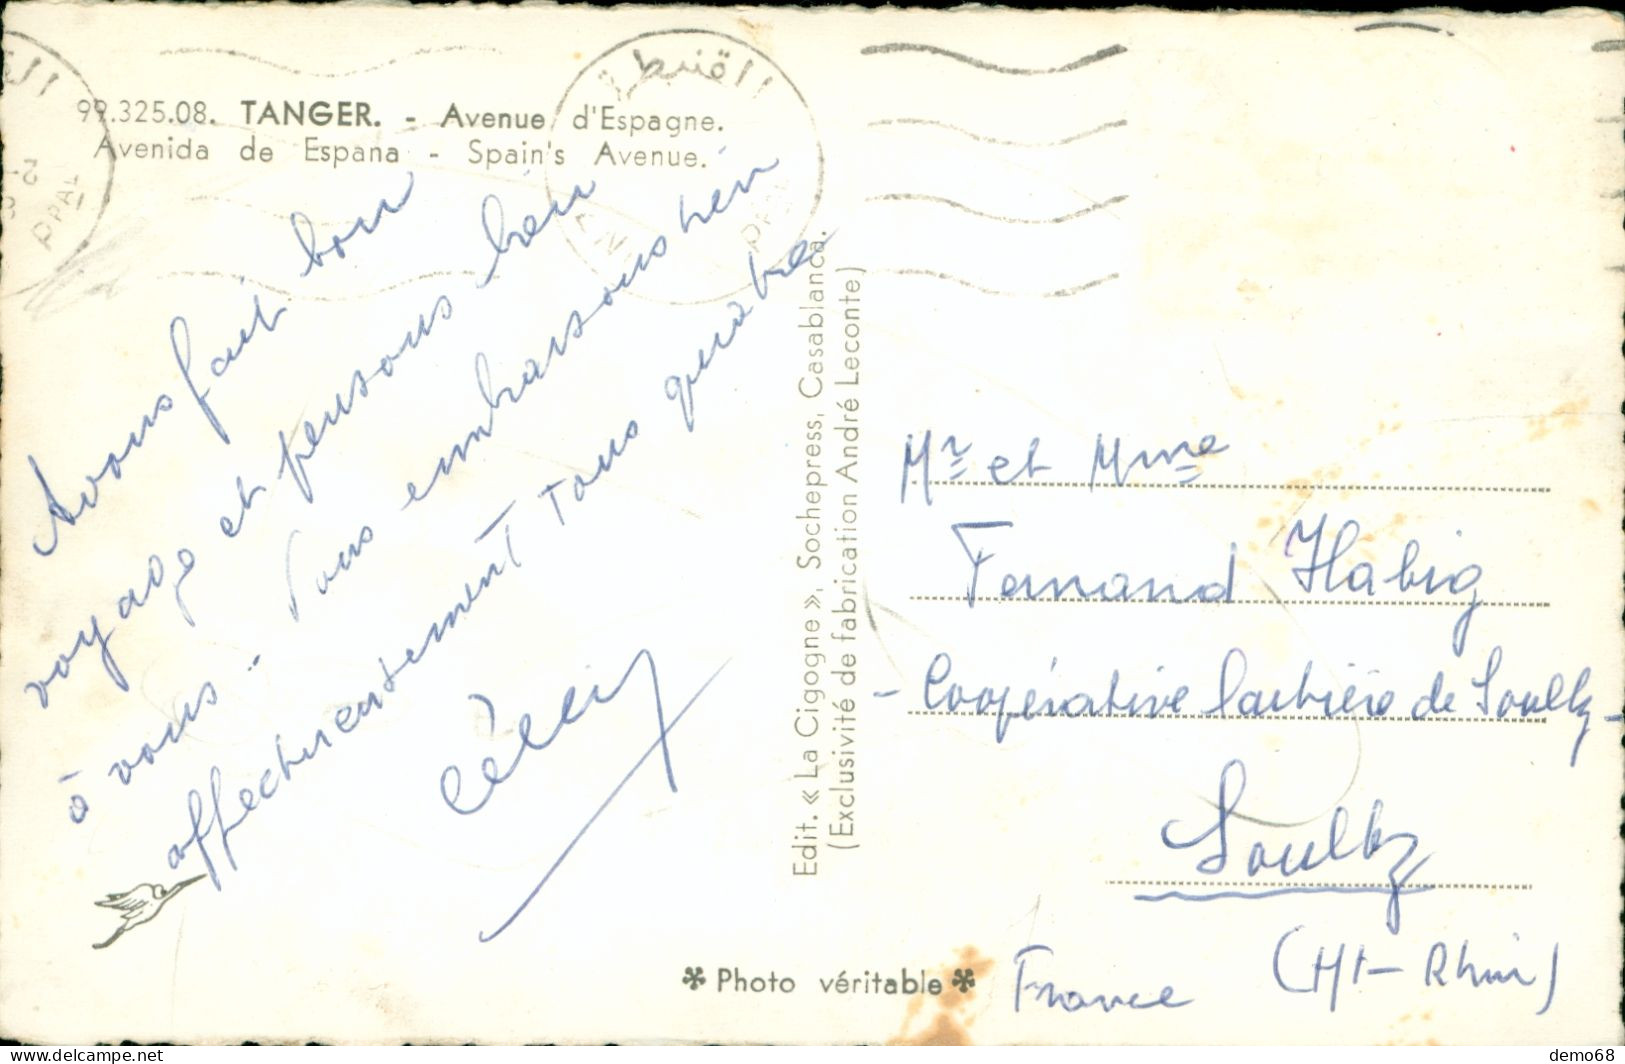 99.325.08. TANGER. - Avenue d'Espagne.
Avenida de Espana - Spain's Avenue.
القنيطرة
PPAL
Avons fait bon
voyage et pensons bien
à vous. Vous embrassons bien
affectueusement tous quatre
Cécily
Edit. « La Cigogne », Sochepress, Casablanca.
(Exclusivité de fabrication André Leconte)
✻ Photo véritable ✻
Mr et Mme
Fernand Habig
- Coopérative laitière de Soultz -
Soultz
(Ht-Rhin)
France
delcampe.net
demo68